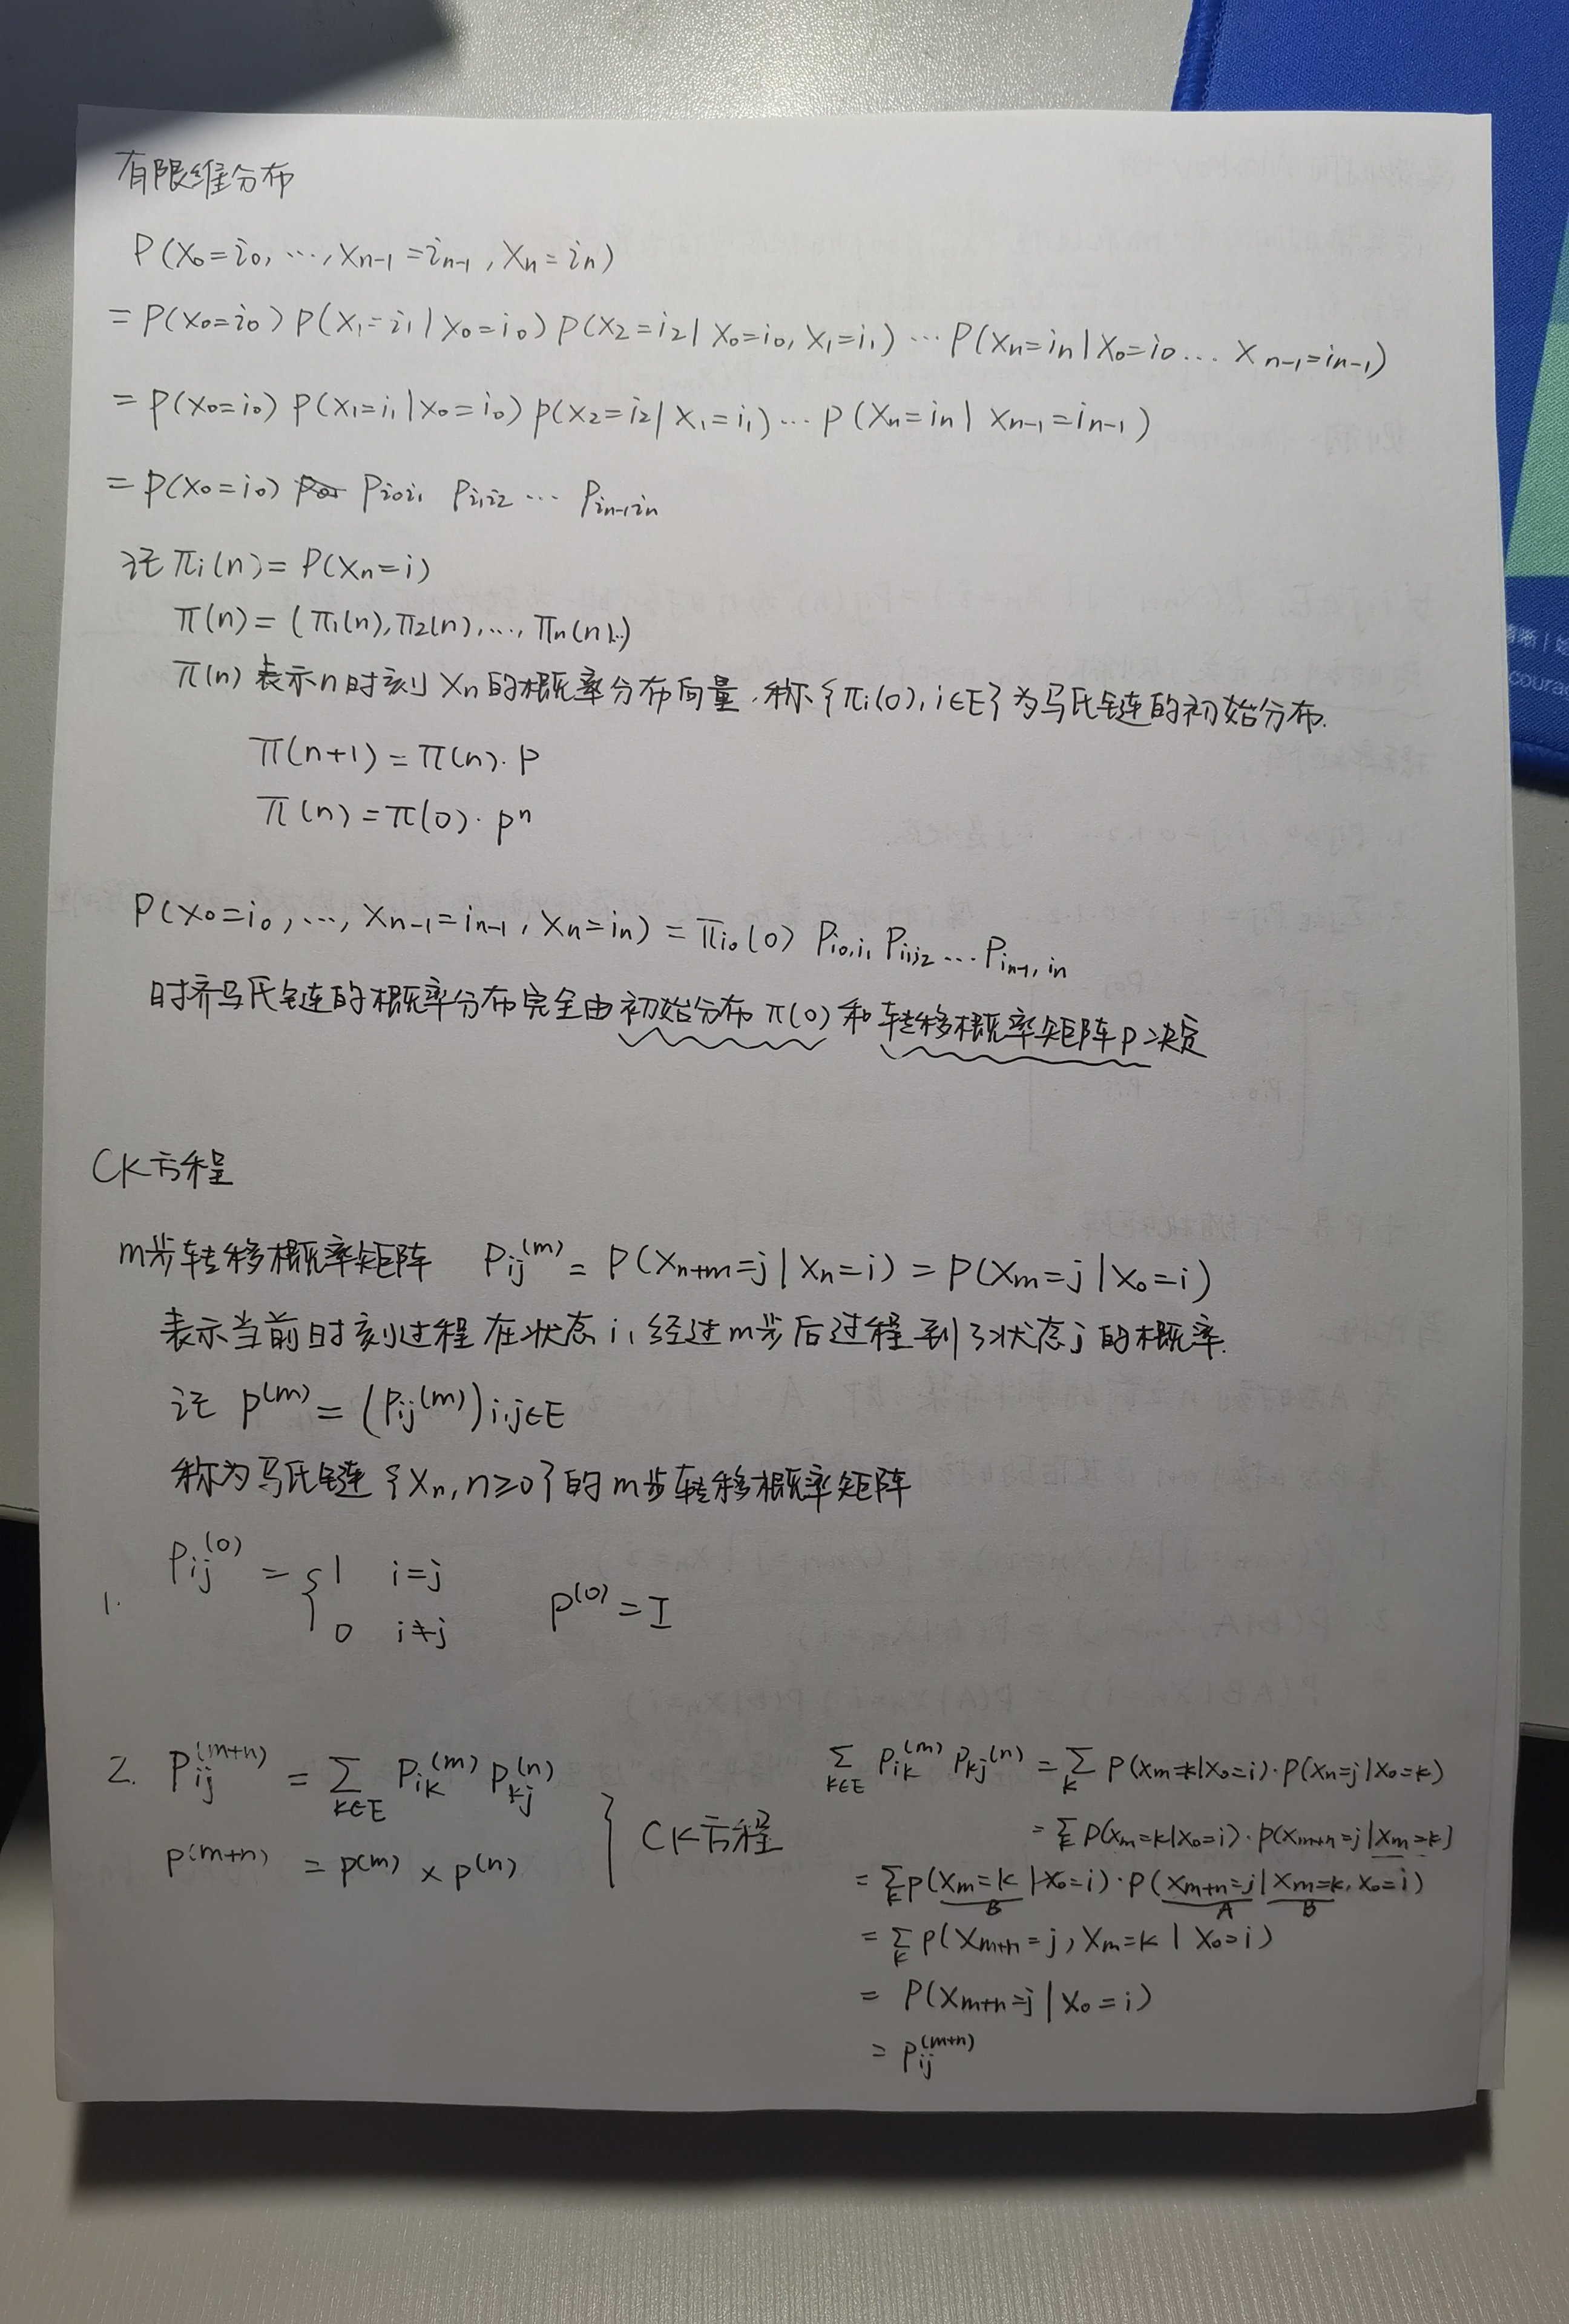 有限维分布
P(X₀=i₀, ⋯, Xₙ₋₁=iₙ₋₁, Xₙ=iₙ)
= P(X₀=i₀) P(X₁=i₁|X₀=i₀) P(X₂=i₂|X₀=i₀, X₁=i₁) ⋯ P(Xₙ=iₙ|X₀=i₀ … Xₙ₋₁=iₙ₋₁)
= P(X₀=i₀) P(X₁=i₁|X₀=i₀) P(X₂=i₂|X₁=i₁) ⋯ P(Xₙ=iₙ|Xₙ₋₁=iₙ₋₁)
= P(X₀=i₀) P_{i₀i₁} P_{i₁i₂} ⋯ P_{iₙ₋₁iₙ}
记 πᵢ(n) = P(Xₙ=i)
π(n) = (π₁(n), π₂(n), …, πₙ(n)…)
π(n) 表示n时刻Xₙ的概率分布向量,称{πᵢ(0), i∈E}为马氏链的初始分布.
π(n+1) = π(n)·P
π(n) = π(0)·Pⁿ
P(X₀=i₀, …, Xₙ₋₁=iₙ₋₁, Xₙ=iₙ) = π_{i₀}(0) P_{i₀,i₁} P_{i₁i₂} ⋯ P_{iₙ₋₁,iₙ}
时齐马氏链的概率分布完全由初始分布π(0)和转移概率矩阵P决定
CK方程
m步转移概率矩阵 Pij^(m) = P(Xₙ₊ₘ=j|Xₙ=i) = P(Xₘ=j|X₀=i)
表示当前时刻过程在状态i,经过m步后过程到了状态j的概率.
记 P^(m) = (Pij^(m)) i,j∈E
称为马氏链{Xₙ, n≥0}的m步转移概率矩阵
1. Pij^(0) = { 1 i=j
0 i≠j P^(0) = I
2. Pij^(m+n) = ∑_{k∈E} Pik^(m) Pkj^(n)
P^(m+n) = P^(m) × P^(n)
} CK方程
∑_{k∈E} Pik^(m) Pkj^(n) = ∑_k P(Xₘ=k|X₀=i)·P(Xₙ=j|X₀=k)
= ∑_k P(Xₘ=k|X₀=i)·P(Xₘ₊ₙ=j|Xₘ=k)
= ∑_k P(Xₘ=k|X₀=i)·P(Xₘ₊ₙ=j|Xₘ=k, X₀=i)
B A B
= ∑_k P(Xₘ₊ₙ=j, Xₘ=k|X₀=i)
= P(Xₘ₊ₙ=j|X₀=i)
= Pij^(m+n)